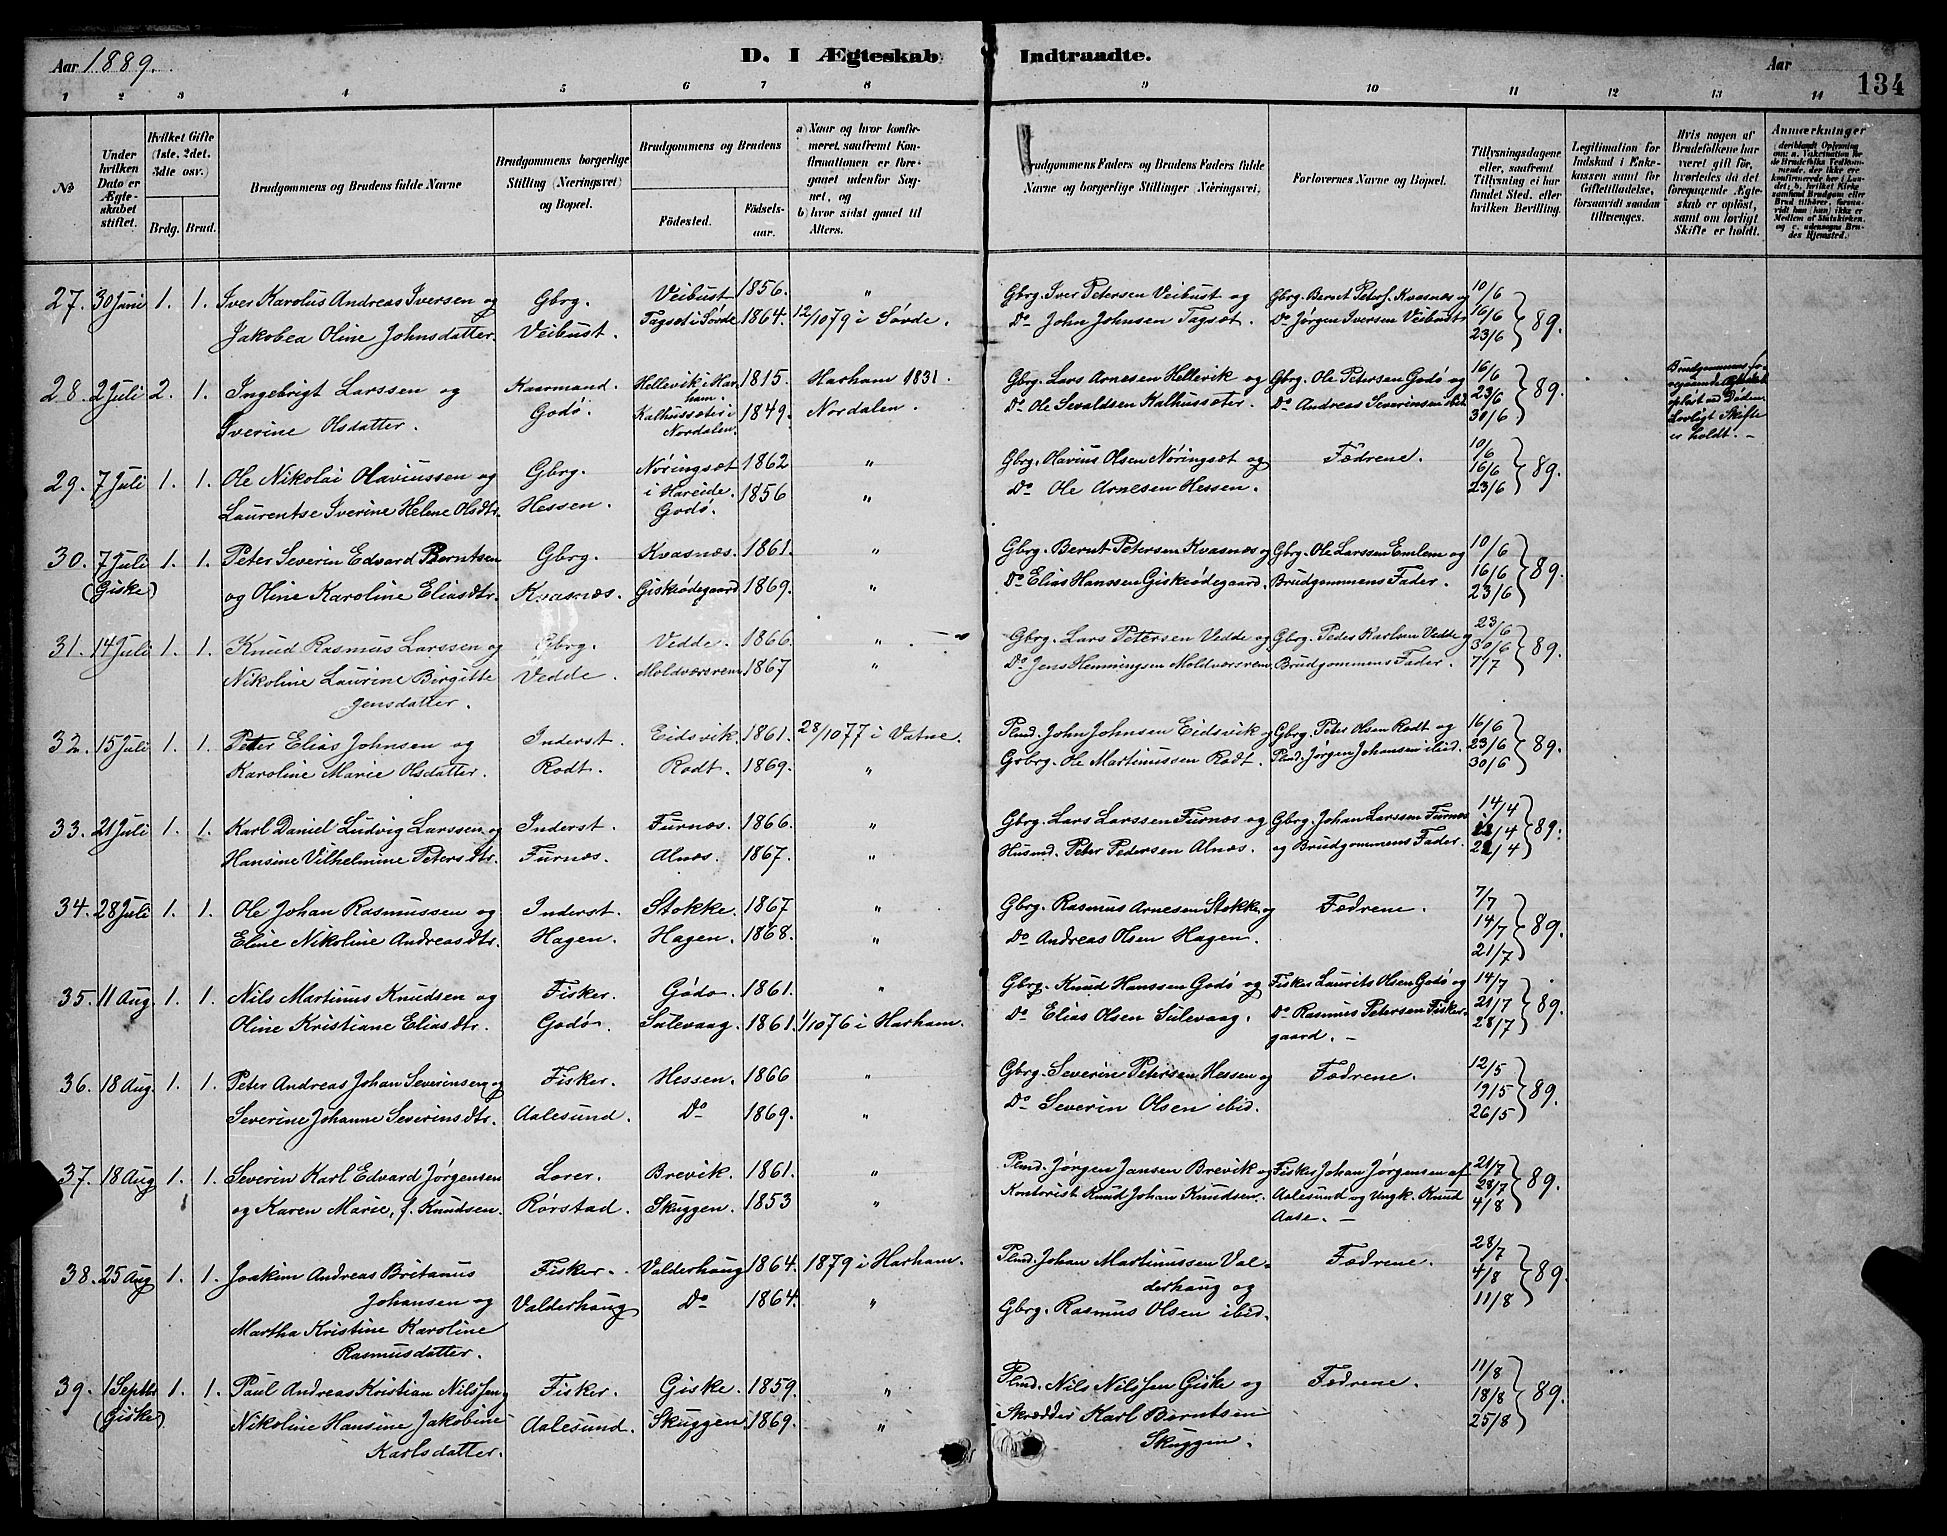 Aar 1889.
D. I Ægteskab Indtraadte.
Aar
134
1 2 3 4 5 6 7 8 9 10 11 12 13 14
No
Under hvilken Dato er Ægteskabet stiftet.
Hvilket Gifte (1ste, 2det, 3dte osv.)
Brdg. Brud.
Brudgommens og Brudens fulde Navne
Brudgommens borgerlige Stilling (Næringsvei) og Bopæl.
Brudgommens og Brudens
Födested.
Födsels-aar.
a) Naar og hvor konfirmeret, saafremt Konfirmationen er foregaaet udenfor Sognet, og
b) hvor sidst gaaet til Alters.
Brudgommens Faders og Brudens Faders fulde Navne og borgerlige Stillinger (Næringsvei).
Forlovernes Navne og Bopæl.
Tillysningsdagene eller, saafremt Tillysning ei har fundet Sted, efter hvilken Bevilling.
Legitimation for Indskud i Enkekassen samt for Giftetilladelse, forsaavidt saadan tiltrænges.
Hvis nogen af Brudefolkene har været gift før, hvorledes da det foregaaende Ægteskab er oplöst, samt om lovligt Skifte er holdt.
Anmærkninger
27. 30 Juni 1. 1. Iver Karolus Andreas Iversen og Gbrg. Veibust 1856. " Gbrg. Iver Petersen Veibust og Gbrg. Bernt Peters. Kvasnes og 10/6
Jakobea Oline Johnsdatter. Veibust. Tagset i Sørde 1864. 12/10 79 i Sørde. Do John Johnsen Tagsæt. Do Jørgen Iversen Veibust 16/6 89.
23/6
28. 2 Juli 2. 1. Ingebrigt Larssen og Kaarmand. Hellevik i Harham. 1815. Harham 1831. Gbrg. Lars Arnesen Hellevik og Gbrg. Ole Petersen Godø og 16/6
Iverine Olsdatter. Godø. Kalhussæter i Nordalen. 1849. Nordalen. Do Ole Sevaldsen Kalhussæter. Do Andreas Severinsen ibid 23/6 89.
30/6
Brudgommens foregaaende Ægteskab opløst ved Døden. Lovligt Skifte er holdt. –
29. 7 Juli 1. 1. Ole Nikolai Olaviussen og Gbrg. Nøringsæt i Hareide. 1862 " Gbrg. Olavius Olsen Nøringsæt og Fædrene. 10/6
Laurentse Iverine Helene Olsdtr. Hessen. Godø. 1856 " Do Ole Arnesen Hessen. 16/6 89.
23/6
30. 7 Juli 1. 1. Peter Severin Edvard Berntsen Gbrg. Kvasnæs. 1861. " Gbrg. Bernt Petersen Kvasnæs og Gbrg. Ole Larssen Emlem og 10/6
(Giske) og Oline Karoline Eliasdtr. Kvasnæs. Giskeødegaard 1869. " Do Elias Hanssen Giskeødegaard. Brudgommens Fader. 16/6 89.
23/6
31. 14 Juli 1. 1. Knud Rasmus Larssen og Gbrg. Vedde. 1866. " Gbrg. Lars Petersen Vedde og Gbrg. Peder Karlsen Vedde og 23/6
Nikoline Laurine Birgitte Vedde. Moldværsrem 1867 " Do Jens Henningsen Moldværsrem. Brudgommens Fader. 30/6 89.
Jensdatter. 7/7
32. 15 Juli 1. 1. Peter Elias Johnsen og Inderst. Eidsvik. 1861. 28/10 77 i Vatne. Plmd. John Johnsen Eidsvik og Gbrg. Peter Olsen Rødt og 16/6
Karoline Marie Olsdatter. Rødt. Rødt. 1869. " Gbrg. Ole Martinussen Rødt. Plmd. Jørgen Johansen ibid. 23/6 89.
30/6
33. 21 Juli 1. 1. Karl Daniel Ludvig Larssen og Inderst. Furnæs. 1866. " Gbrg. Lars Larssen Furnæs og Gbrg. Johan Larssen Furnæs 14/4
Hansine Vilhelmine Petersdtr. Furnæs. Alnæs. 1867. " Husmd. Peter Pedersen Alnæs. og Brudgommens Fader. 89.
34. 28 Juli 1. 1. Ole Johan Rasmussen og Inderst. Stokke. 1867 " Gbrg. Rasmus Arnesen Stokke og Fædrene. 7/7
Eline Nikoline Andreasdtr. Hagen. Hagen. 1868. " Do Andreas Olsen Hagen. 14/7 89.
21/7
35. 11 Aug. 1. 1. Nils Martinus Knudsen og Fisker. Godø. 1861. " Gbrg. Knud Hanssen Godø og Fisker Laurits Olsen Godø og 14/7
Oline Kristiane Eliasdtr. Godø. Sulevaag. 1861. 1/10 76 i Harham. Do Elias Olsen Sulevaag. Do Rasmus Petersen Fiskergaard. – 21/7 89.
28/7
36. 18 Aug. 1. 1. Peter Andreas Johan Severinsen og Fisker. Hessen. 1866 " Gbrg. Severin Petersen Hessen og Fædrene. 12/5
Severine Johanne Severinsdtr. Aalesund. Do 1869. " Do Severin Olsen ibid. 19/5 89.
26/5
37. 18 Aug 1. 1. Severin Karl Edvard Jørgensen Lærer. Brevik. 1861. " Plmd. Jørgen Jansen Brevik og Fisker Johan Jørgensen af 21/7
og Karen Marie, f. Knudsen. Rørstad. Skuggen. 1853 " Kontorist Knud Johan Knudsen. Aalesund og Ungk. Knud Aase. – 28/7 89.
4/8
38. 25 Aug 1. 1. Joakim Andreas Britanus Fisker. Valderhaug 1864. 1879 i Harham. Plmd. Johan Martinussen Valderhaug og Fædrene. 28/7
Johansen og Valderhaug Do 1864. " Gbrg. Rasmus Olsen ibid. 4/8 89.
Martha Kristine Karoline 11/8
Rasmusdatter.
39. 1 Septbr 1. 1. Paul Andreas Kristian Nilssen og Fisker. Giske. 1859. " Plmd. Nils Nilssen Giske og Fædrene. 11/8
(Giske) Nikoline Hansine Jakobine Aalesund. Skuggen 1869. " Skrædder Karl Berntsen 18/8 89.
Karlsdatter. Skuggen. 25/8